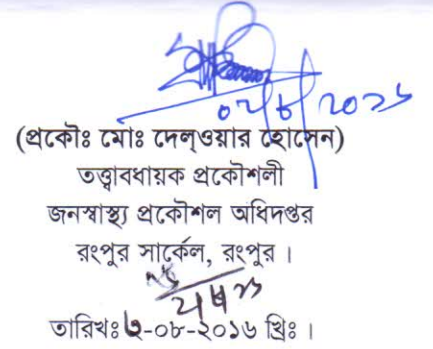 ০২/৮/২০১৬
(প্রকৌঃ মোঃ দেল্ওয়ার হোসেন)
তত্ত্বাবধায়ক প্রকৌশলী
জনস্বাস্থ্য প্রকৌশল অধিদপ্তর
রংপুর সার্কেল, রংপুর ।
তারিখঃ ৩-০৮-২০১৬ খ্রিঃ ।